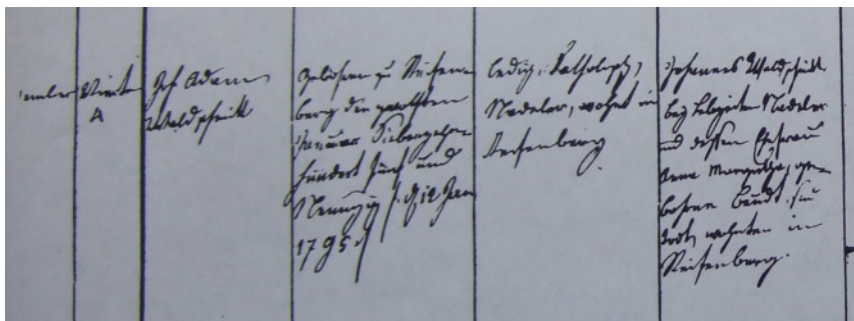 Vierte
A
Joh Adam
Waldschmitt
Gebohren zu Reifen-
berg den zwölften
Januar Siebenzehn
hundert Fünf und
Neunzig / d. 12 Jan
1795 /
ledig, Katholisch,
Nadeler, wohnt in
Reifenberg
Johannes Waldschmitt
bey Lebzeiten Nadeler
und dessen Ehefrau
Anna Margretha, ge-
bohrne
todt, wohnten in
Reifenberg.